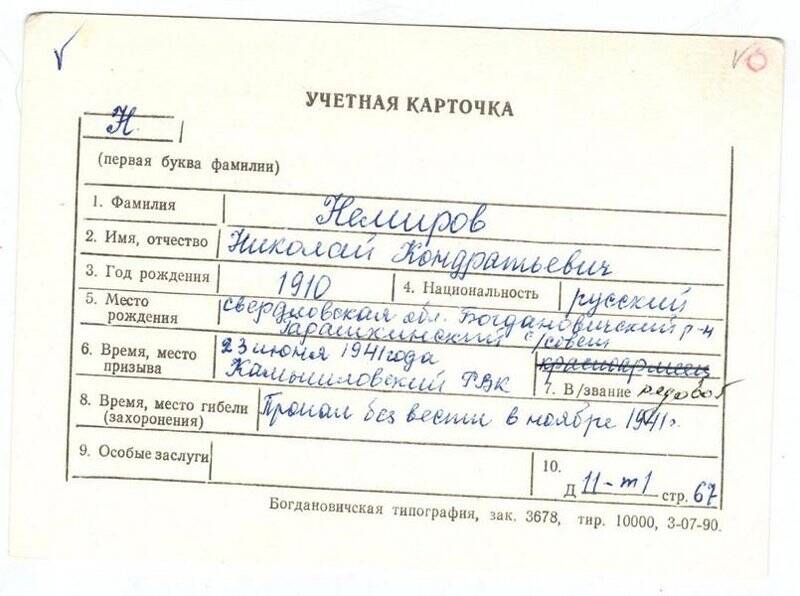 УЧЕТНАЯ КАРТОЧКА
Н.
(первая буква фамилии)
1. Фамилия Немиров
2. Имя, отчество Николай Кондратьевич
3. Год рождения 1910 4. Национальность русский
5. Место рождения свердловская обл. Богдановичский р-н
Гарашкинский с/совет
6. Время, место призыва 23 июня 1941 года
Камышловский РВК
красноармеец
7. В/звание рядовой
8. Время, место гибели (захоронения) Пропал без вести в ноябре 1941г.
9. Особые заслуги
10.
Д 11-т1 стр. 67
Богдановичская типография, зак. 3678, тир. 10000, 3-07-90.